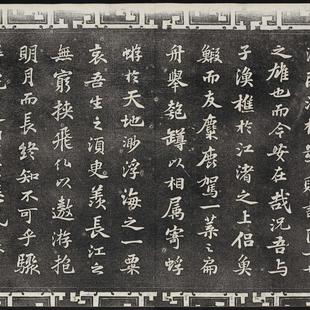 之雄也而今安在哉況吾與
子漁樵於江渚之上侶魚
鰕而友麋鹿駕一葉之扁
舟舉匏罇以相屬寄蜉
蝣於天地渺浮海之一粟
哀吾生之須臾羨長江之
無窮挾飛仙以遨游抱
明月而長終知不可乎驟